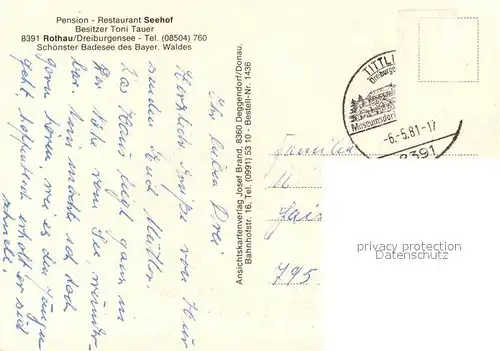 Pension - Restaurant Seehof
Besitzer Toni Tauer
8391 Rothau/Dreiburgensee - Tel. (08504) 760
Schönster Badesee des Bayer. Waldes
Ihr lieben Drei
Herzliche Grüße von hier
senden Euch Mutter.
Das Haus liegt ganz in
der Nähe vom See, wunder-
bar. Wir möchte ich doch
gern hören, wie es dem Jungen
geht, hoffentlich erholt er sich
schnell.
Ansichtskartenverlag Josef Brand, 8360 Deggendorf/Donau.
Bahnhofstr. 16, Tel. (0991) 53 10 - Bestell-Nr. 1436
TITTLI
Dreiburge
Museumsdorf
-6.-5.81-17
8391
Familie
795
privacy protection
AnsichtskartenHandel.de